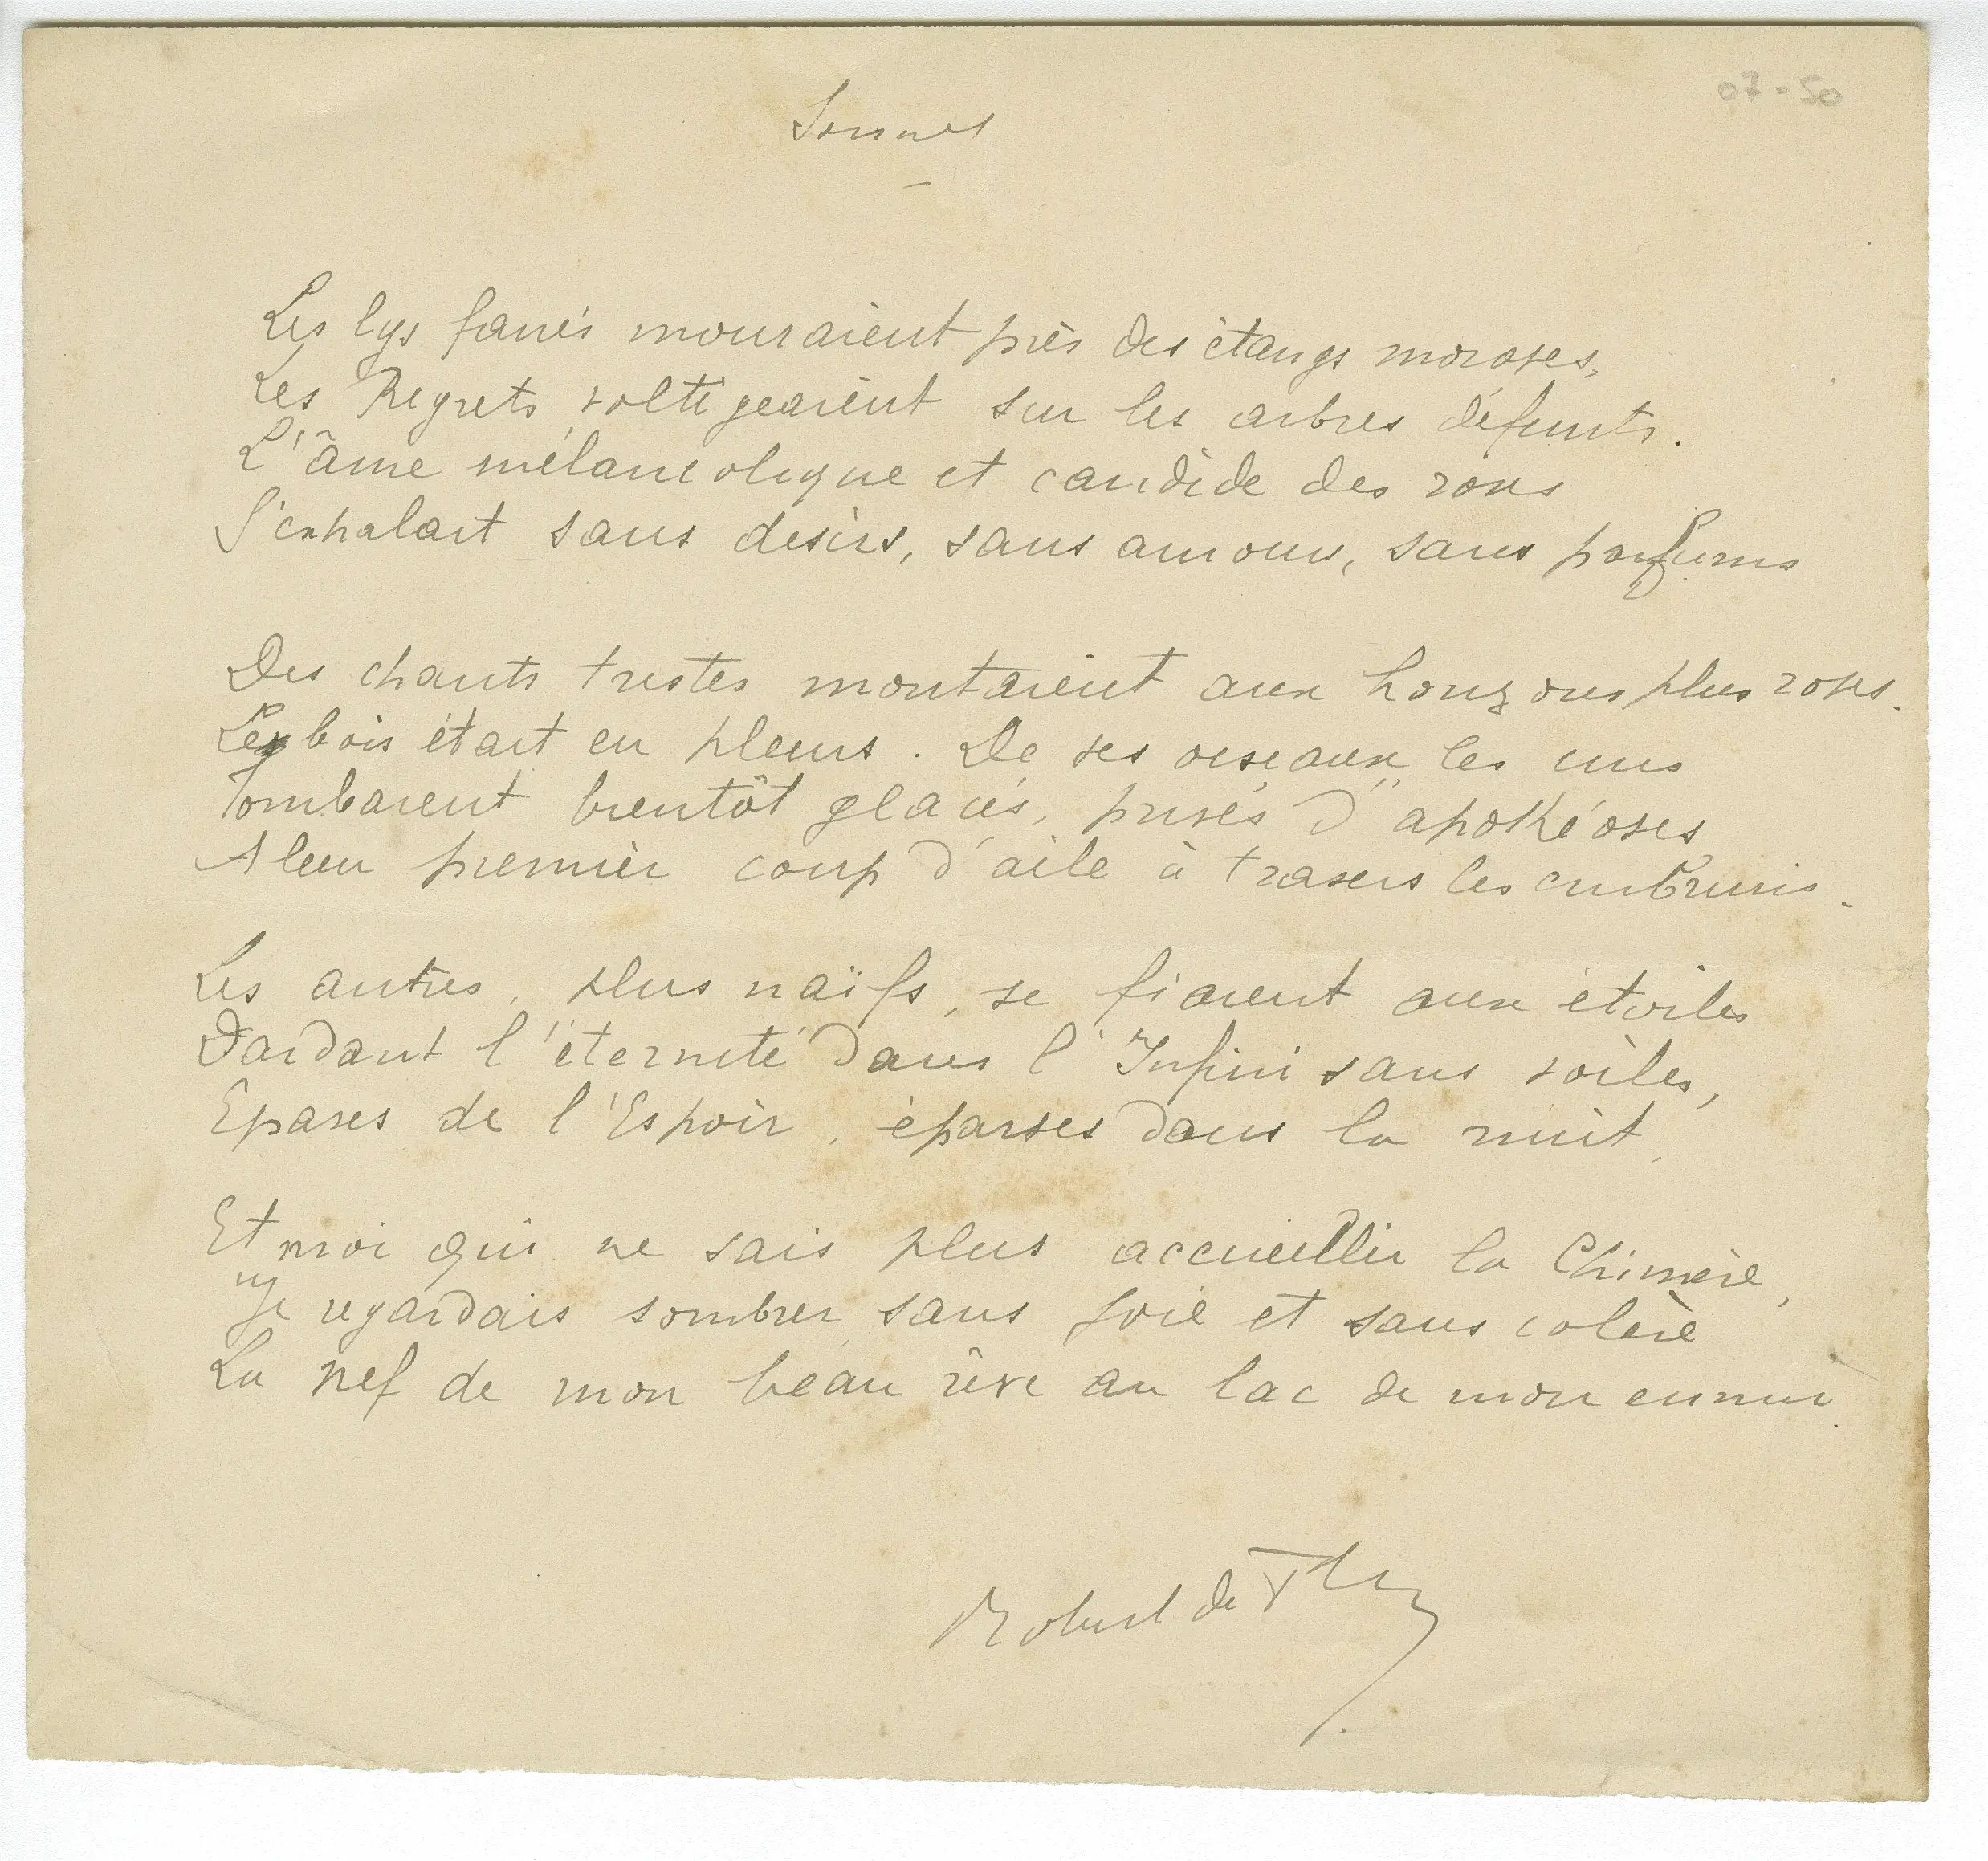 07-50
Sonnet
Les lys fanés mouraient près des étangs moroses,
Les Regrets voltigeaient sur les arbres défunts.
L'âme mélancolique et candide des roses
S'exhalait sans desirs, sans amour, sans parfums
Des chants tristes montaient aux horizons plus roses.
Le bois était en pleurs. De ses oiseaux, les uns
Tombaient bientôt glacés, privés d'apothéoses
A leur premier coup d'aile à travers les embruns.
Les autres, plus naïfs, se fiaient aux étoiles
Dardant l'éternité dans l'Infini sans voiles,
Epaves de l'Espoir, éparses dans la nuit,
Et moi qui ne sais plus accueillir la Chimère,
Je regardais sombrer sans joie et sans colère
La nef de mon beau rêve au lac de mon ennui
Robert de